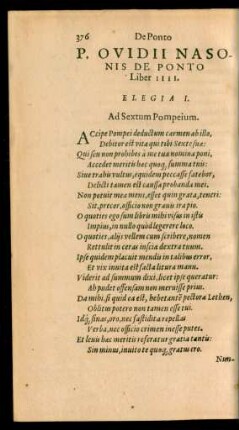 376 De Ponto
P. OVIDII NASO-
NIS DE PONTO
Liber IIII.
ELEGIA I.
Ad Sextum Pompeium.
ACcipe Pompei deductum carmen ab illo,
Debitor est vitæ qui tibi Sexte suæ:
Qui seu non prohibes à me tua nomina poni,
Accedet meritis hæc quoq; summa tuis:
Siue trabis vultus, equidem peccasse fatebor,
Delicti tamen est caussa probanda mei.
Non potuit mea mens, esset quin grata, teneri:
Sit, precor, officio non grauis ira pio.
O quoties ego sum libris mihi visus in istis
Impius, in nullo quòd legerere loco.
O quoties, alijs vellem cum scribere, nomen
Rettulit in ceras inscia dextra tuum.
Ipse quidem placuit mendis in talibus error,
Et vix inuita est facta litura manu.
Viderit ad summum dixi, licet ipse queratur:
Ah pudet offensam non meruisse prius.
Da mihi, si quid ea est, hebetantē pectora Lethen,
Oblitus potero non tamen esse tui.
Idq́; sinas, oro, nec fastidita repellas
Verba, nec officio crimen inesse putes.
Et leuis hæc meritis referatur gratia tantis:
Sin minus, inuito te quoq; gratus ero.
Num-